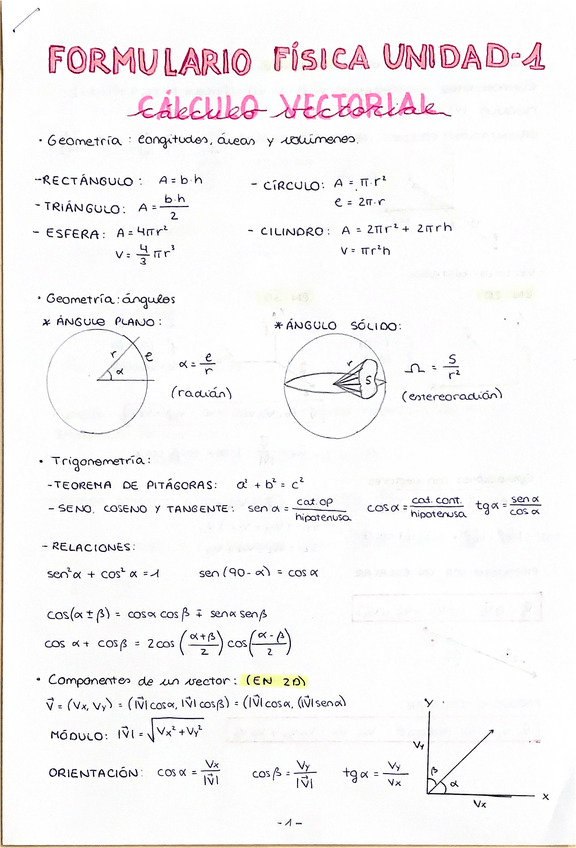 FORMULARIO FÍSICA UNIDAD-1
CÁLCULO VECTORIAL
· Geometría: longitudes, áreas y volúmenes.
-RECTÁNGULO: A = b·h
- CÍRCULO: A = π·r²
e = 2π·r
- TRIÁNGULO: A = b·h/2
- ESFERA: A = 4πr²
V = 4/3 πr³
- CILINDRO: A = 2πr² + 2πrh
V = πr²h
· Geometría: ángulos
* ÁNGULO PLANO:
r e α
α = e/r
(radián)
* ÁNGULO SÓLIDO:
r S
Ω = S/r²
(estereoradián)
· Trigonometría:
-TEOREMA DE PITÁGORAS: a² + b² = c²
- SENO, COSENO Y TANGENTE: sen α = cat.op/hipotenusa cos α = cat. cont./hipotenusa tg α = sen α/cos α
- RELACIONES:
sen²α + cos²α = 1 sen(90-α) = cos α
cos(α ± β) = cosα cosβ ∓ senα senβ
cos α + cosβ = 2cos (α+β/2) cos(α-β/2)
· Componentes de un vector: (EN 2D)
V⃗ = (Vx, Vy) = (|V⃗|cosα, |V⃗|cosβ) = (|V⃗|cosα, |V⃗|senα)
MÓDULO: |V⃗| = √Vx² + Vy²
ORIENTACIÓN: cosα = Vx/|V⃗| cosβ = Vy/|V⃗| tgα = Vy/Vx
Y
Vy
β α
X
Vx
-1-